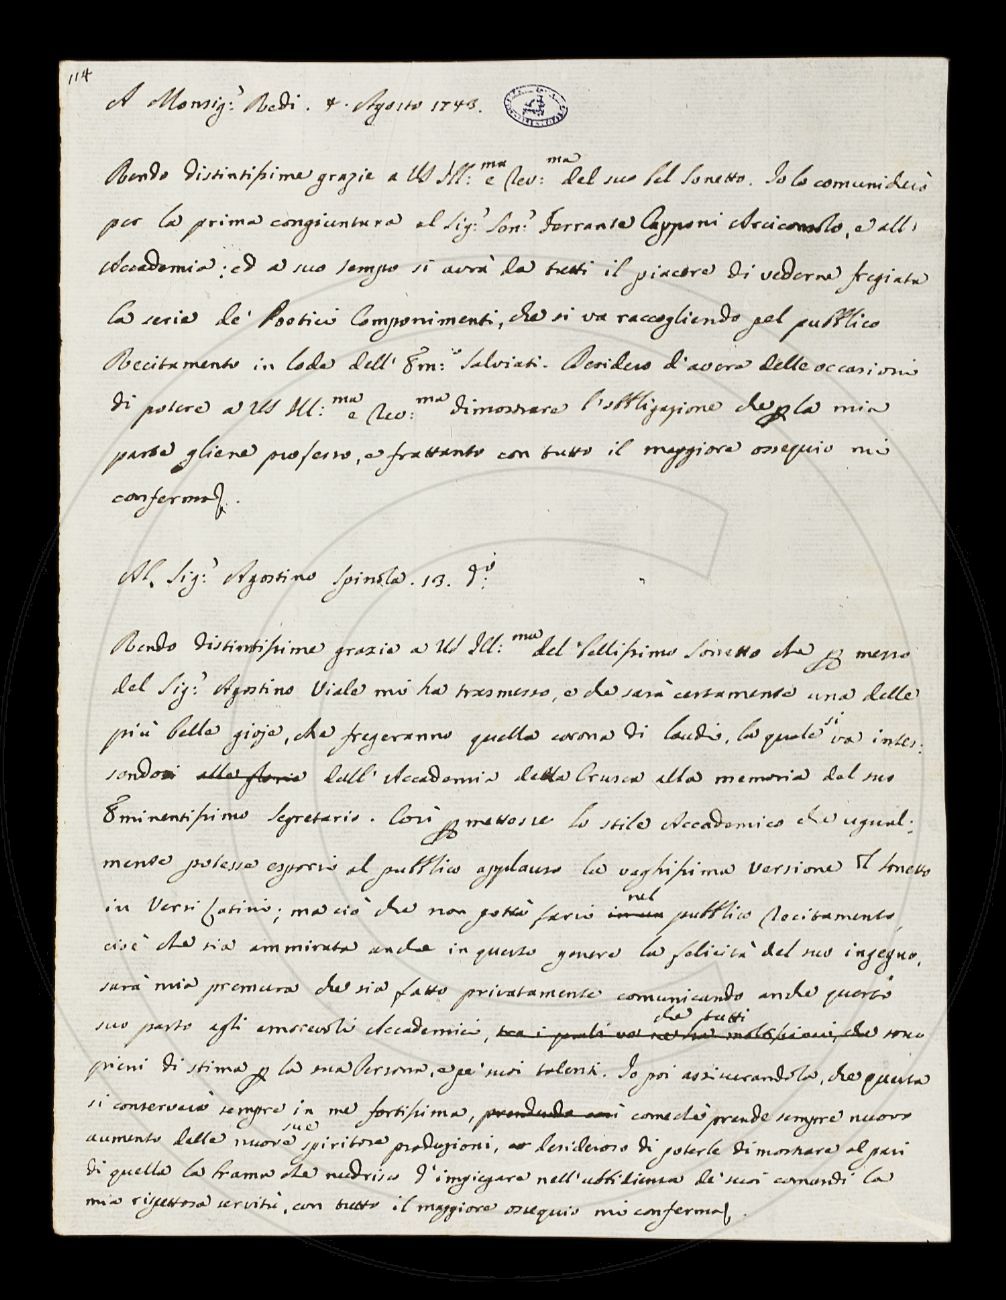 114
A Monsig.r Redi. 4. Agosto 1743.
Rendo distintissime grazie a VS Ill:ma e Rev:ma del suo bel Sonetto. Io lo comunicherò
per la prima congiuntura al Sig.r Sen.r Ferrante Capponi Arciconsolo, e all'
Accademia; ed a suo tempo si avrà da tutti il piacere di vederne fregiata
la serie de' Poetici Componimenti, che si va raccogliendo pel pubblico
Recitamento in lode dell' Em:o Salviati. Desidero d'avere delle occasioni
di potere a VS Ill:ma e Rev:ma dimostrare l'obbligazione che p la mia
parte gliene professo, e frattanto con tutto il maggiore ossequio mi
confermo.
Al Sig.r Agostino Spinola. 13. d:o
Rendo distintissime grazie a VS Ill:ma del bellissimo Sonetto che p mezzo
del Sig.r Agostino Viale mi ha trasmesso, e che sarà certamente una delle
più belle gioje, che fregeranno quella corona di laudi, la quale si va intes:
sendo alle glorie dall' Accademia della Crusca alla memoria del suo
Eminentissimo Segretario. Così pmettesse lo stile Accademico che ugual:
mente potesse esporsi al pubblico applauso la vaghissima versione Sonetto
in Versi Latini; ma ciò che non potrà farsi nel pubblico Recitamento,
cioè che sia ammirata anche in questo genere la felicità del suo ingegno,
sarà mia premura che sia fatto privatamente comunicando anche questo
suo parto agli amorevoli Accademici, tra i quali ve ne ha moltissimi, che che tutti sono
pieni di stima p la sua Persona, e pe' suoi talenti. Io poi assicurandola, che questa
si conserverà sempre in me fortissima, prendendo comechè prende sempre nuovo
aumento dalle nuove sue spiritose produzioni, desideroso di poterle dimostrare al pari
di quella la brama che nudrisco d'impiegare nell'ubbidienza de' suoi comandi la
mia rispettosa servitù, con tutto il maggiore ossequio mi confermo.